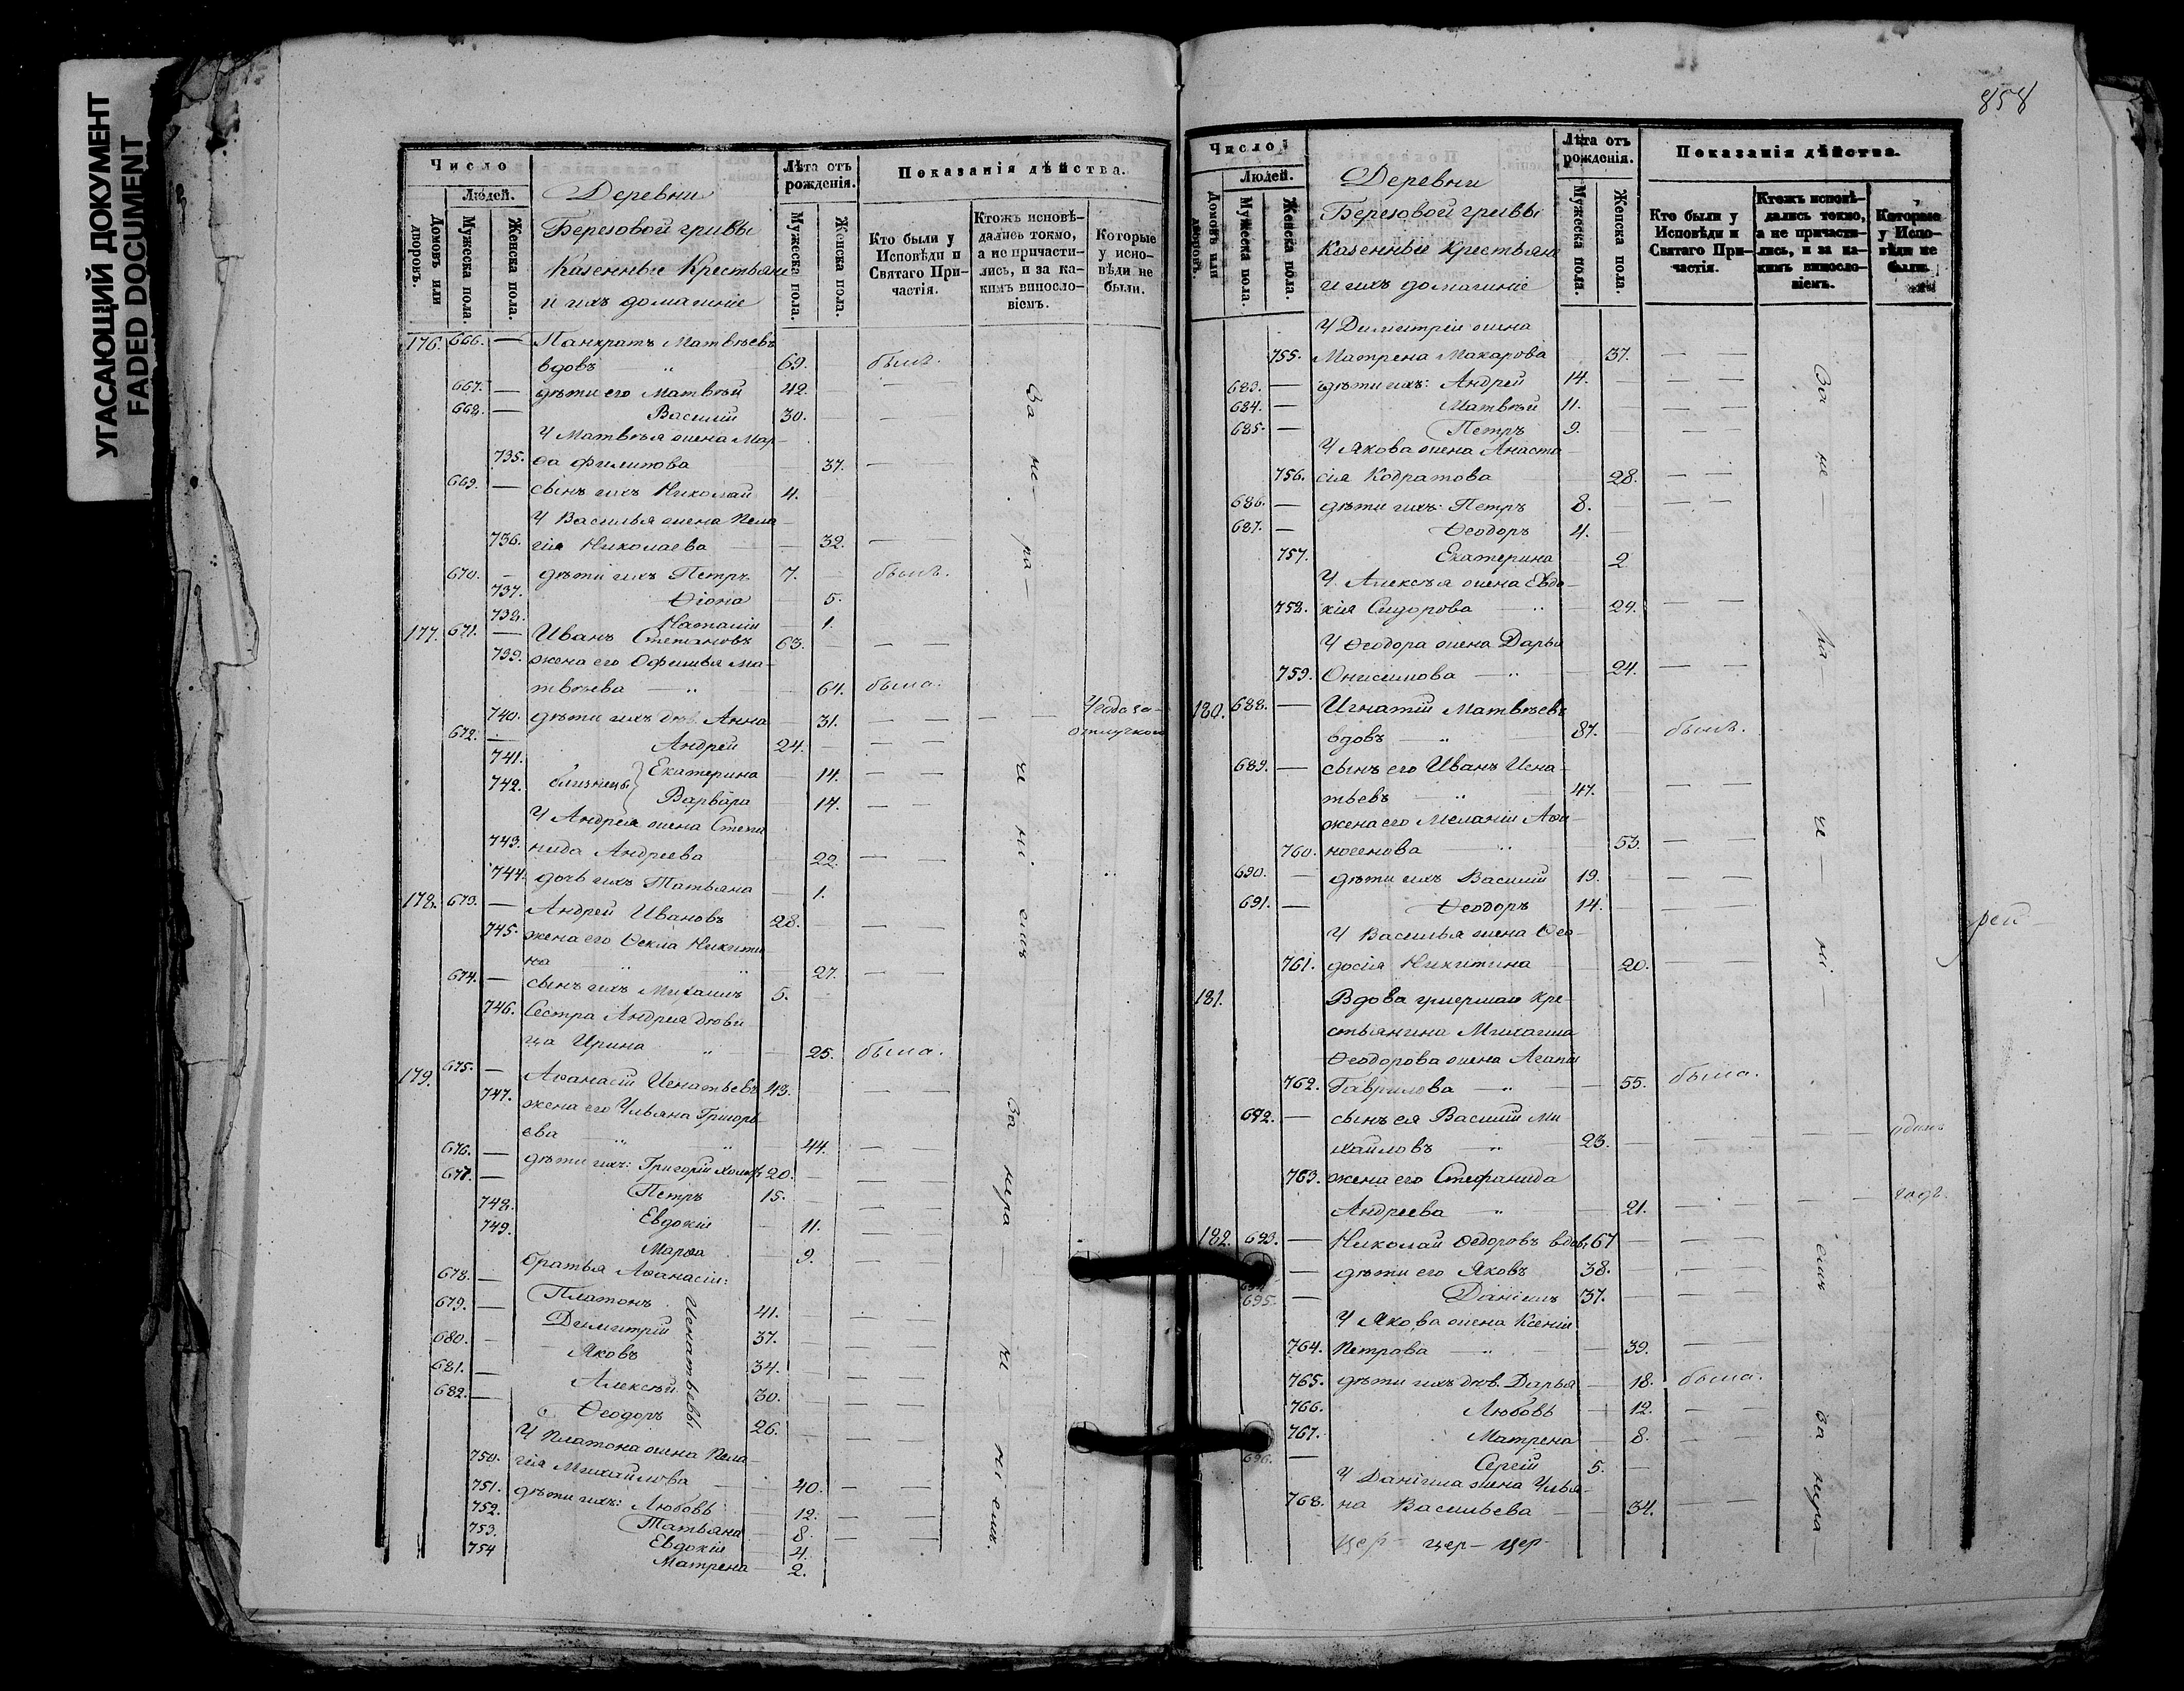 УГАСАЮЩИЙ ДОКУМЕНТ
FADED DOCUMENT
Число
Людей.
Домовъ или дворовъ.
Мужеска пола.
Женска пола.
Деревни
Березовой гривы
Казенные Крестьяне
и ихъ домашніе
Лѣта отъ рожденія.
Мужеска пола.
Женска пола.
Показанія дѣйства.
Кто были у Исповѣди и Святаго Причастія.
Ктожъ исповѣдались токмо, а не причастились, и за какимъ винословіемъ.
Которые у исповѣди не были.
176. 666. — Панкратъ Матвѣевъ
вдовъ 69. былъ.
667. — дѣти его Матвѣй 42. — —
668. — Василій 30. — —
У Матвѣя жена Мар-
735. ѳа Филипова 37. — —
669. — сынъ ихъ Николай 4. —
У Василья жена Пела-
736. гія Николаева — 32. — —
670. — дѣти ихъ Петръ 7. — былъ.
737. Ѳіона — 5.
738. Наталія — 1.
177. 671. — Иванъ Степановъ 63. — — —
739. жена его Офимья Ма-
твѣева — 64. была.
740. дѣти ихъ дѣв. Анна — 31. — — — —
672. — Андрей 24. — — —
741. Екатерина — 14. — —
742. близнецы Варвара — 14. — —
У Андрея жена Степа
743. нида Андреева 22. — —
744. дочь ихъ Татьяна — 1.
178. 673. — Андрей Ивановъ 28. — — —
745. жена его Ѳекла Никити
на 27. — —
674. — сынъ ихъ Михаилъ 5. —
746. Сестра Андрея дѣви
ца Ирина — 25. была.
179. 675. — Аѳанасій Игнатьевъ 43. — —
747. жена его Ульяна Григорь-
ева — 44. — —
676. — дѣти ихъ: Григорій 20. — — —
677. — Петръ 15. — — —
748. Евдокія — 11. — —
749. Марѳа — 9. — —
братья Аѳанасія:
678. — Платонъ 41. — — —
679. — Димитрій 37. — — —
680. — Яковъ 34. — — —
681. — Алексѣй 30. — — —
682. — Ѳеодоръ 26. — — —
Игнатьевы
У Платона жена Пела-
750. гія Михайлова — 40. — —
751. дѣти ихъ: Любовь — 12. — —
752. Татьяна — 8. — —
753. Евдокія — 4.
754 Матрена — 2.
За не- ра- че ні емъ
За нера че — ні емъ.
858
Число
Людей.
Домовъ или дворовъ.
Мужеска пола.
Женска пола.
Деревни
Березовой гривы
Казенные Крестьяне
и ихъ домашніе
Лѣта отъ рожденія.
Мужеска пола.
Женска пола.
Показанія дѣйства.
Кто были у Исповѣди и Святаго Причастія.
Ктожъ исповѣдались токмо, а не причастились, и за какимъ винословіемъ.
Которые у Исповѣди не были.
У Димитрія жена
755. Матрена Макарова 37. — —
683. — дѣти ихъ: Андрей 14. — — —
684. — Матвѣй 11. — — —
685. — Петръ 9. — — —
У Якова жена Анаста-
756. сія Кодратова 28. — —
686. — дѣти ихъ: Петръ 8. — — —
687. — Ѳеодоръ 4. —
757. Екатерина 2
У Алексѣя жена Евдо-
758. кія Сидорова — 29. — —
У Ѳеодора жена Дарья
759. Онисимова — 24. — —
180. 688. — Игнатій Матвѣевъ
вдовъ — 87. — былъ.
689. — сынъ его Иванъ Игна-
тьевъ 47. — — —
жена его Меланія Аѳа-
760. носенова — 53. — —
690. — дѣти ихъ Василій 19. — — —
691. — Ѳеодоръ 14. — — —
У Василья жена Ѳео-
761. досія Никитина 20. — —
181. Вдова умершаго кре-
стьянина Михаила
Ѳеодорова жена Агапія
762. Гаврилова — 55. была.
692. — сынъ ея Василій Ми
хайловъ 23. — — — — — одинъ
763. жена его Стефанида
Андреева — 21. — — — — годъ.
182. 693. — Николай Ѳедоровъ вдов. 67 — — —
694 — дѣти его Яковъ 38. — — —
695. — Даніилъ 37. — — —
У Якова жена Ксенія
764. Петрова — 39. — —
765. дѣти ихъ дѣв. Дарья — 18. была.
766. Любовь — 12. — —
767. Матрена — 8. — —
696. — Сергій 5. —
У Даніила жена Улья-
768. на Васильева — 34. — —
За не — ра — че — ні — емъ
За нера —